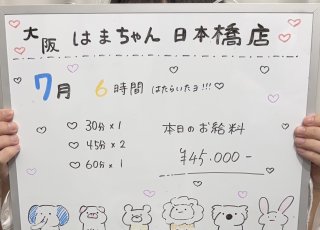 大阪 はまちゃん 日本橋店
7月 6時間 はたらいたヨ!!!
30分×1
45分×2
60分×1
本日のお給料
¥45.000-